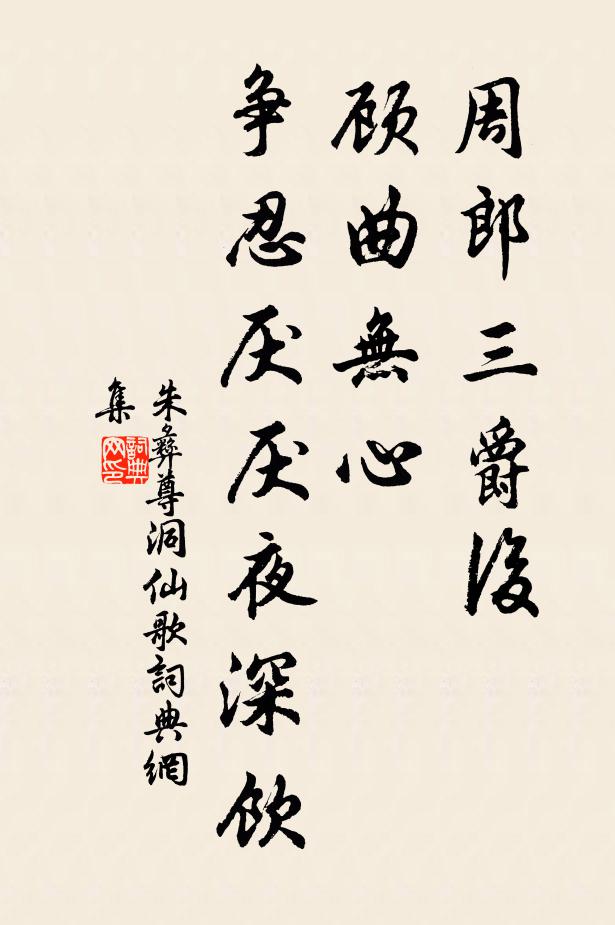 周郎三爵後
顾曲無心
争忍厌厌夜深飲
朱彝尊洞仙歌詞典網
集
詞典
网印